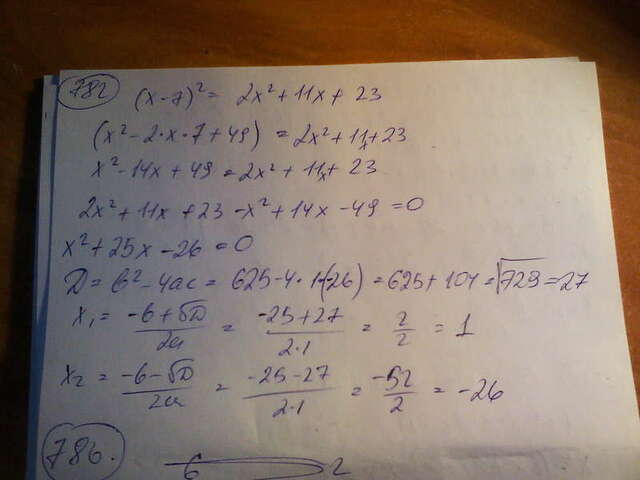 782 (x-7)² = 2x² + 11x + 23
(x² - 2·x·7 + 49) = 2x² + 11x + 23
x² - 14x + 49 = 2x² + 11x + 23
2x² + 11x + 23 - x² + 14x - 49 = 0
x² + 25x - 26 = 0
D = b² - 4ac = 625 - 4·1·(-26) = 625 + 104 = √729 = 27
x₁ = (-b + √D)/(2a) = (-25 + 27)/(2·1) = 2/2 = 1
x₂ = (-b - √D)/(2a) = (-25 - 27)/(2·1) = -52/2 = -26
786.